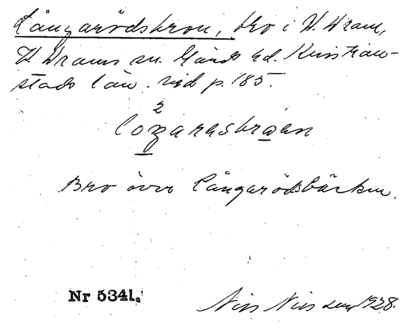 Långarödsbron, bro i V. Vram,
V. Vrams sn. Gärds hd. Kristian-
stads län. vid p. 185.
2
Bro över Långarödsbäcken.
Nr 5341.
Nils Nilsson 1928.